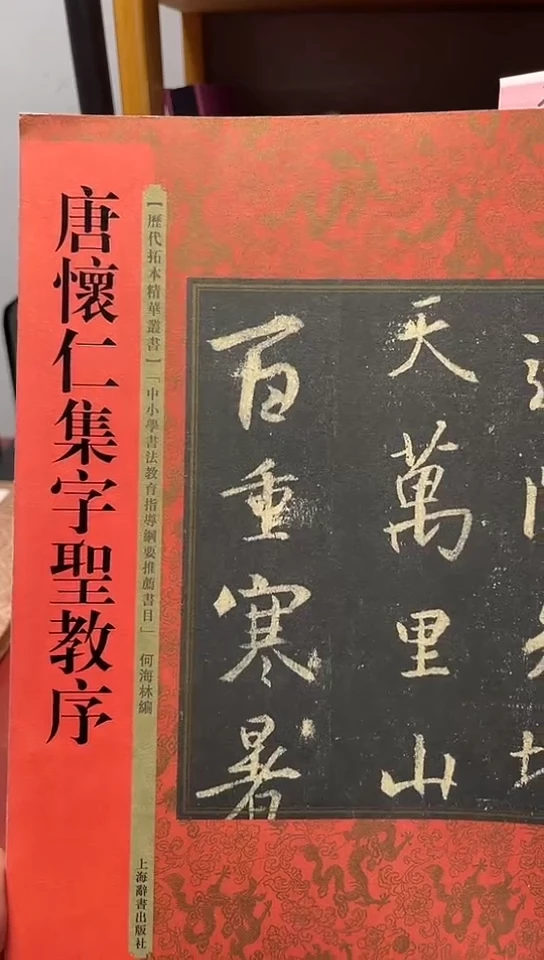 唐懷仁集字聖教序
【歷代拓本精華叢書】「中小學書法教育指導綱要推薦書目」 何海林編
上海辭書出版社
天萬里山
百重寒暑